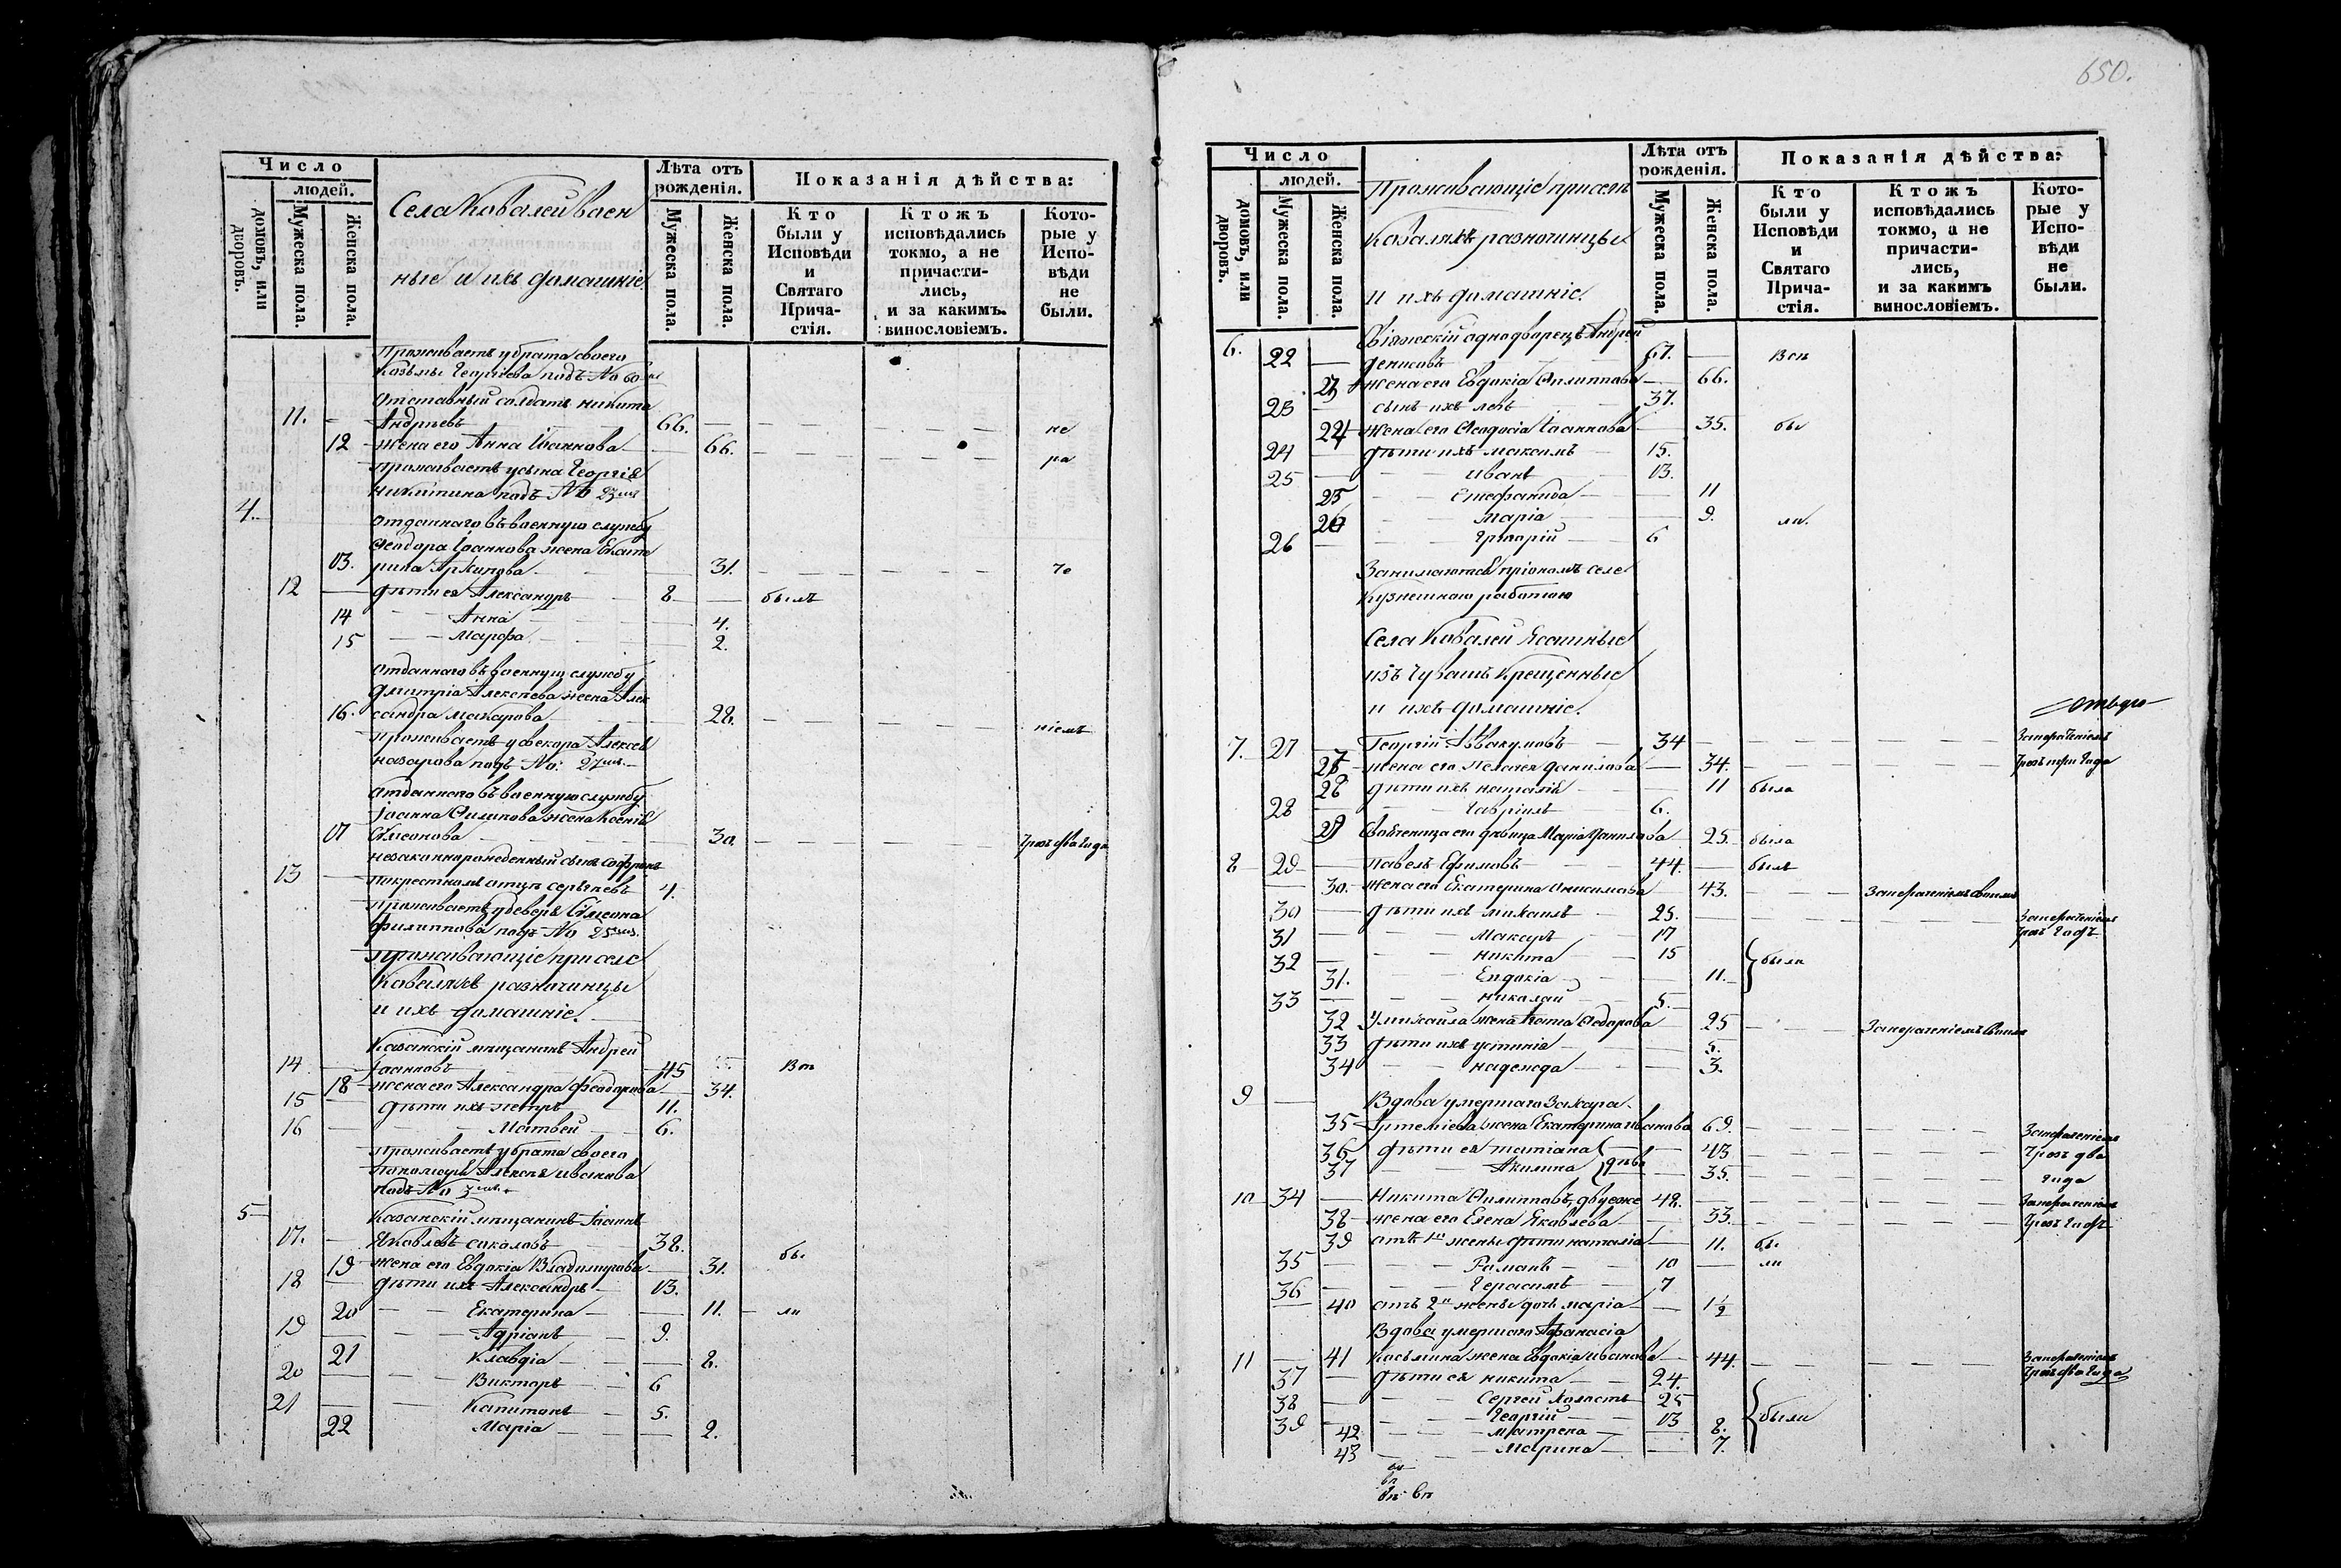 650.
Число
людей.
домовъ, или дворовъ.
Мужеска пола.
Женска пола.
Села Ковалей воен
ные и ихъ домашніе.
Лѣта отъ рожденія.
Мужеска пола.
Женска пола.
Показанія дѣйства:
Кто были у Исповѣди и Святаго Прича-стія.
Ктожъ исповѣдались токмо, а не причасти-лись, и за какимъ винословіемъ.
Кото-рые у Испо-вѣди не были.
проживаетъ у брата своего
Козьмы Георгіева подъ No 60
отставный солдатъ никита
11. Андреевъ 66. не
12 жена его Анна Іоаннова 66. ра
проживаетъ у сына Георгія
никитина подъ No 23
4. отданнаго въ военную службу
Ѳеодора Іоаннова жена Екате
13. рина Архипова 31. че
12 дѣти ея Александръ 8 былъ
14 Анна 4.
15 Марѳа 2.
отданнаго въ военную службу
Дмитріа Алексѣева жена Алек
16. сандра Макарова 28. ніемъ
проживаетъ у свекора Алексѣя
назарова подъ No: 27
отданнаго въ военную службу
Іоанна Филипова жена Ксенія
17 Сѵмеонова 30. чрезъ два года
незаконнорожденный сынъ Софронъ
13 по крестномъ отцѣ Сергѣевъ 4.
проживаетъ у деверя Сѵмеона
Филиппова подъ No 25
проживающіе при селе
Коваляхъ разночинцы
и ихъ домашніе.
Казанскій мещанинъ Андрей
14 Іоанновъ 45 Вси
18 жена его Александра Феодорова 34.
15 дѣти ихъ петръ 11.
16 Матвей 6.
проживаетъ у брата своего
пономаря Алексѣя Иванова
подъ No 3
5 Казанскій мещанинъ Іоаннъ
17. Яковлевъ Соколовъ 38.
19 жена его Евдокіа Владимирова 31. бы
18 дѣти ихъ Александръ 13.
20 Екатерина 11. ли
19 Адріанъ 9.
21 Клавдіа 8.
20 Викторъ 6
21 Капитонъ 5.
22 Маріа 2.
Число
людей.
домовъ, или дворовъ.
Мужеска пола.
Женска пола.
Проживающіе при селе
Коваляхъ разночинцы
и ихъ домашніе.
Лѣта отъ рожденія.
Мужеска пола.
Женска пола.
Показанія дѣйства:
Кто были у Исповѣди и Святаго Прича-стія.
Ктожъ исповѣдались токмо, а не причасти-лись, и за какимъ винословіемъ.
Кото-рые у Испо-вѣди не были.
6. Свіяжскій однодворецъ Андрей
22 денисовъ 67. Вси
23 жена его Евдокіа Филиппова 66.
23 сынъ ихъ левъ 37.
24 жена его Ѳеодосіа Іоаннова 35. бы
24 дѣти ихъ максимъ 15.
25 иванъ 13.
25 Стефанида 11
26 Маріа 9. ли.
26 Григорій 6
Занимаются при ономъ селе
Кузнешною работою
Села Ковалей Ясашные
изъ Чувашъ Крещенные
и ихъ домашніе.
7. 27 Георгій Аввакумовъ 34 за нераченіемъ
27 жена его Пелагея данилова 34. чрезъ три года
28 дѣти ихъ наталія 11 была
28 Гавріилъ 6.
29 Свояченица его дѣвица Маріа данилова 25. была
8 29 павелъ Ефимовъ 44. былъ
30. жена его Екатерина Анисимова 43. за нераченіемъ своимъ
30 дѣти ихъ михаилъ 25. за нераченіемъ
31 Макаръ 17 чрезъ годъ
32 никита 15 были
31. Евдокіа 11.
33 николай 5.
32 У михаила жена Ѳеодорова 25 за нераченіемъ своимъ
33 дѣти ихъ устинія 5.
34 надежда 3.
9 Вдова умершаго Захара
35 Артеміева жена Екатерина иванова 69. за нераченіемъ
36 дѣти ея татіана 43 чрезъ два
37 Акилина дѣвы 35. года
10 34 Никита Филипповъ, двуеже 48. за нераченіемъ
38 жена его Елена Яковлева 33. чрезъ годъ
39 отъ 1й жены дѣти наталіа 11. бы
35 Романъ 10 ли
36 Герасимъ 7
40 отъ 2й жены дочь маріа 1½
Вдова умершаго Афанасіа
11 41 Косьмина жена Евдокіа иванова 44. за нераченіемъ
37 дѣти ея никита 24. чрезъ два года
38 Сергей холостъ 25
39 Георгій 13 были
42 Матрена 8.
43 Марина 7.